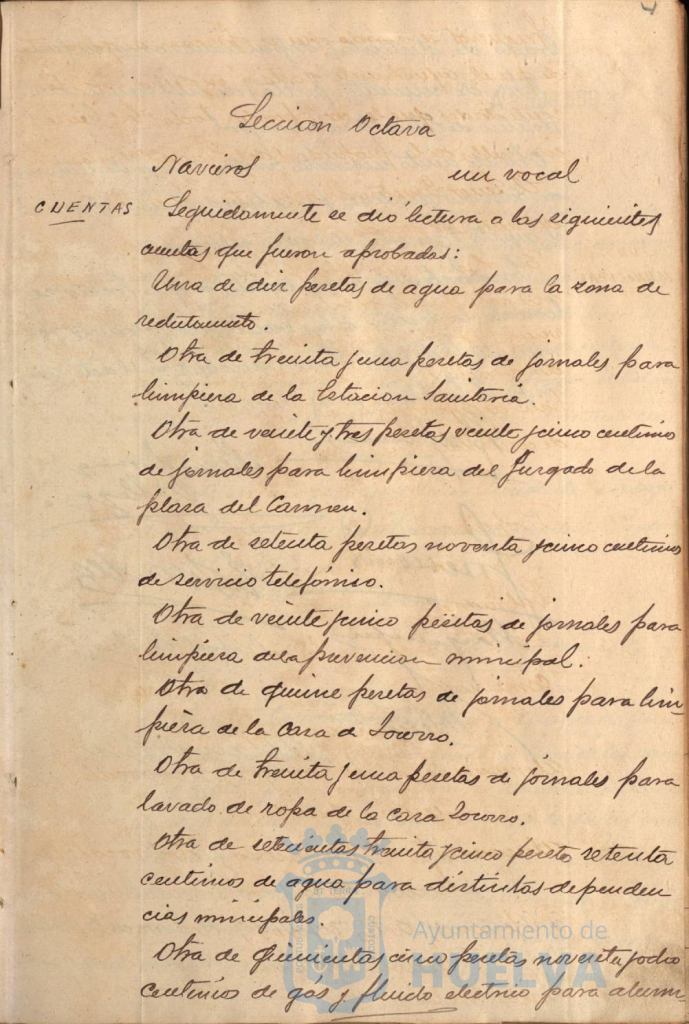 Seccion Octava
Navieros un vocal
CUENTAS
Seguidamente se dió lectura a las siguientes
cuentas que fueron aprobadas:
Una de diez pesetas de agua para la zona de
reclutamiento.
Otra de treinta y una pesetas de jornales para
limpieza de la Estacion Sanitaria.
Otra de veinte y tres pesetas veinte y cinco centimos
de jornales para limpieza del Juzgado de la
plaza del Carmen.
Otra de setenta pesetas noventa y cinco centimos
de servicio telefónico.
Otra de veinte y cinco pesetas de jornales para
limpieza de la prevencion municipal.
Otra de quince pesetas de jornales para lim-
pieza de la Casa de Socorro.
Otra de treinta y una pesetas de jornales para
lavado de ropa de la casa Socorro.
Otra de setecientas treinta y cinco peseta setenta
centimos de agua para distintas dependen
cias municipales.
Otra de quinientas cinco pesetas noventa y ocho
centimos de gás y fluido electrico para alum-
Ayuntamiento de
HUELVA